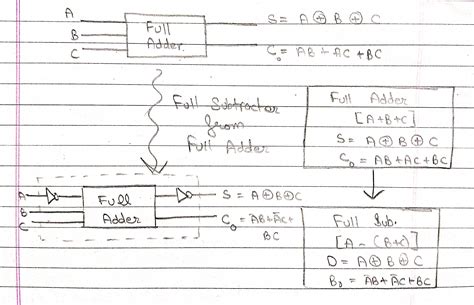 A
B
C
Full
Adder.
S = A ⊕ B ⊕ C
C₀ = AB + AC + BC
Full Subtractor
from
Full Adder
Full Adder
[A+B+C]
S = A ⊕ B ⊕ C
C₀ = AB + AC + BC
A
B
C
Full
Adder
S = A ⊕ B ⊕ C
C₀ = A̅B + A̅C +
BC
Full Sub.
[A - (B+C)]
D = A ⊕ B ⊕ C
B₀ = A̅B + A̅C + BC